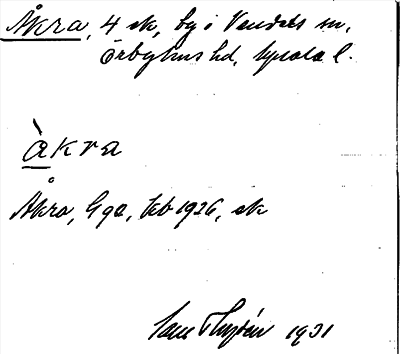 Åkra, 4 ek, by i Vendels sn,
Örbyhus hd, Uppsala l.
àkra
Åkra, Gge, kb 1926, ek
Thysén 1931